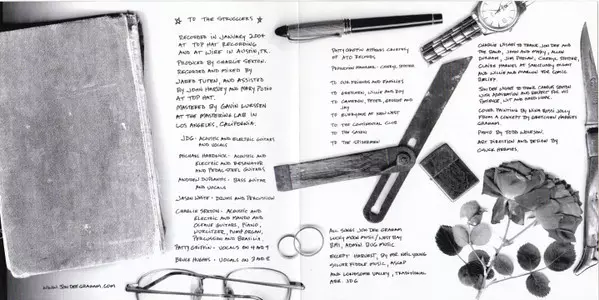 TO THE STRUGGLERS
RECORDED IN JANUARY 2004
AT TOP HAT RECORDING
AND AT WIRE IN AUSTIN, TX.
PRODUCED BY CHARLIE SEXTON.
RECORDED AND MIXED BY
JARED TUTEN, AND ASSISTED
BY JOHN HARVEY AND MARY PODIO
AT TOP HAT.
MASTERED BY GAVIN LURSSEN
AT THE MASTERING LAB IN
LOS ANGELES, CALIFORNIA.
JDG - ACOUSTIC AND ELECTRIC GUITARS
AND VOCALS
MICHAEL HARDWICK - ACOUSTIC AND
ELECTRIC AND RESONATOR
AND PEDAL STEEL GUITARS
ANDREW DUPLANTIS - BASS GUITAR
AND VOCALS
JASON WHITE - DRUMS AND PERCUSSION
CHARLIE SEXTON - ACOUSTIC AND
ELECTRIC AND MANDO AND
OCTAVE GUITARS, PIANO,
WURLITZER, PUMP ORGAN,
PERCUSSION AND BRAZILIA.
PATTY GRIFFIN - VOCALS ON 4 AND 9
BRUCE HUGHES - VOCALS ON 2 AND 8
WWW.JONDEEGRAHAM.COM
PATTY GRIFFIN APPEARS COURTESY
OF ATO RECORDS
PRODUCTION MANAGER - CHERYL SEXTER
TO OUR FRIENDS AND FAMILIES
TO GRETCHEN, WILLIE AND ROY
TO CAMERON, PETER, GEORGE AND
JOY
TO EVERYONE AT NEW WEST
TO THE CONTINENTAL CLUB
TO THE SAXON
TO THE
ALL SONGS JON DEE GRAHAM
LUCKY MOON MUSIC / WHIT BAY
BMI, ADMIN BUG MUSIC
EXCEPT HARVEST, BY MR. NEIL YOUNG
SILVER FIDDLE MUSIC, ASCAP
AND LONESOME VALLEY, TRADITIONAL
ARR. JDG
CHARLIE WISHES TO THANK JON DEE AND
THE BAND, JOHN AND MARY, ALLEN
JIM CHERYL SEXTER,
CLAIRE AT
AND WILLIE AND MARLON FOR COMIC
RELIEF.
JON DEE WISHES TO THANK CHARLIE SEXTON
WITH ADMIRATION AND RESPECT FOR HIS
PATIENCE, WIT AND HARD WORK.
COVER PAINTING BY JOLLY
FROM A CONCEPT BY GRETCHEN HARRIES
GRAHAM.
PHOTO BY TODD WOLFSON.
ART DIRECTION AND DESIGN BY
CHUCK HERMES.